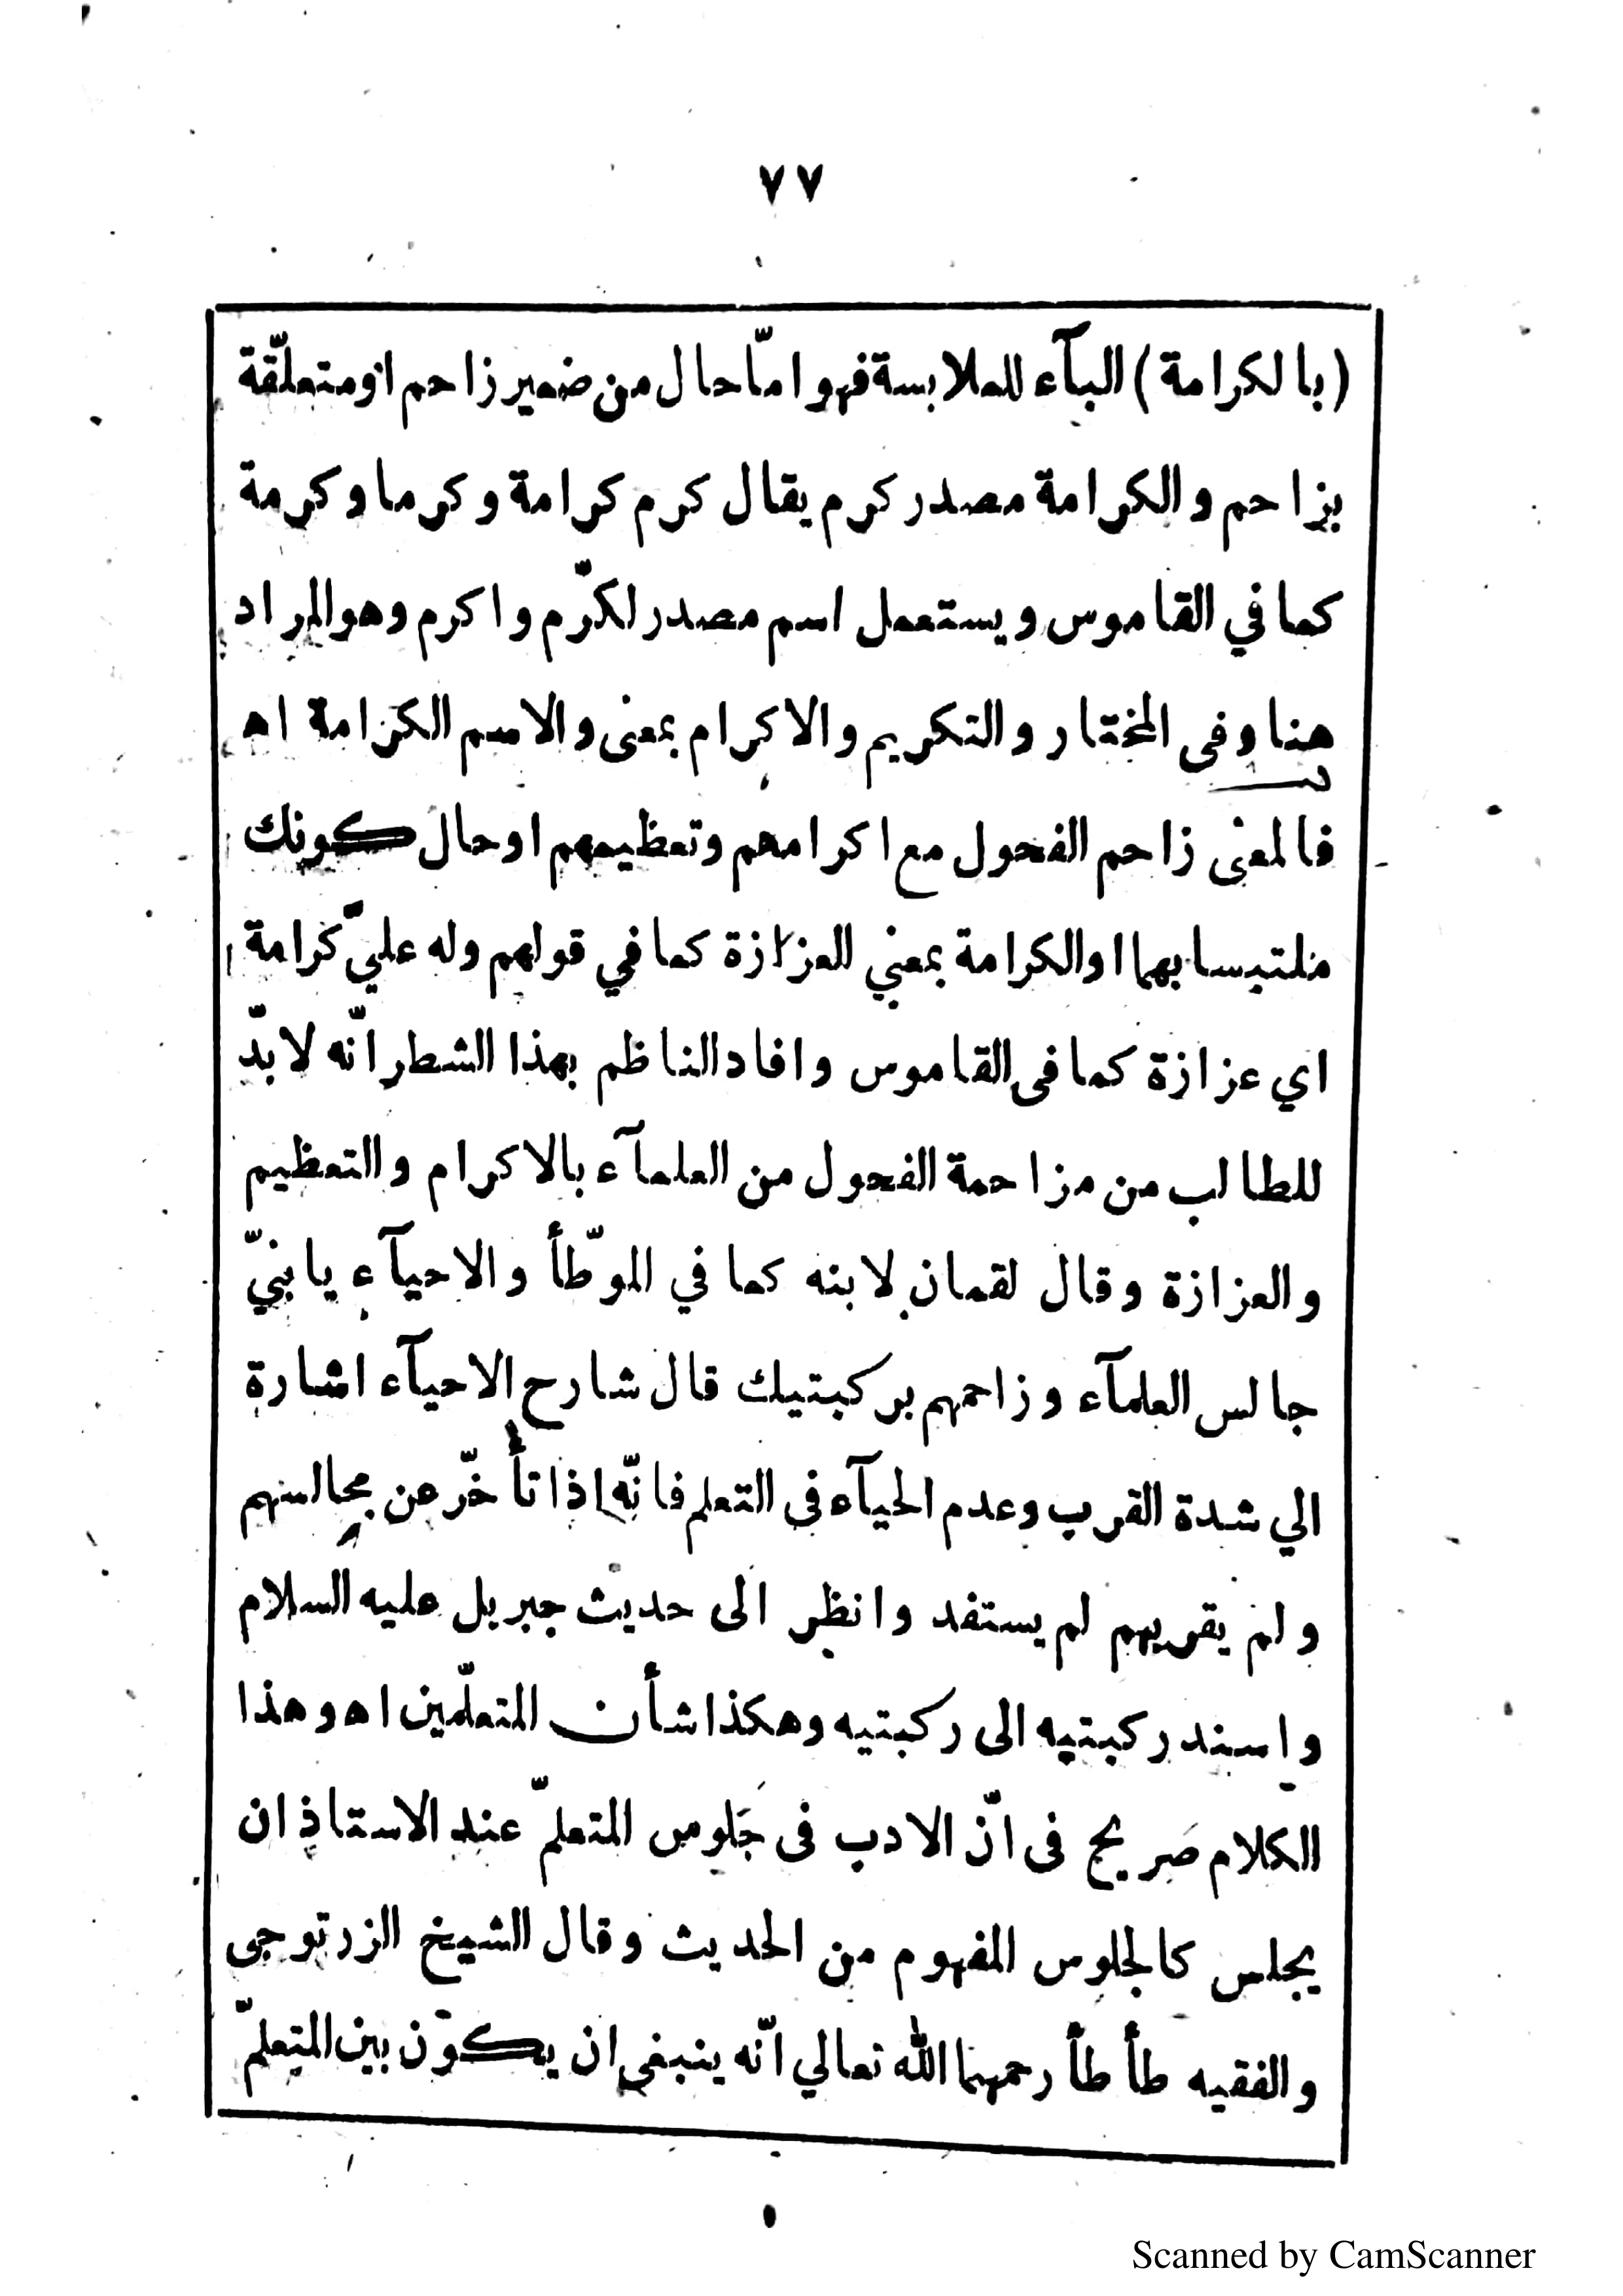 ٧٧
(بالكرامة) البآء للملابسة فهو امّا حال من ضمير زاحم او متعلّقة
بزاحم والكرامة مصدر كرم يقال كرم كرامة وكرما وكرمة
كما في القاموس ويستعمل اسم مصدر لكرّم واكرم وهو المراد
هنا وفى المختار والتكريم والاكرام بمعنى والاسم الكرامة اه
فالمعنى زاحم الفحول مع اكرامهم وتعظيمهم او حال كونك
ملتبسا بهما او الكرامة بمعني العزازة كما في قولهم وله عليّ كرامة
اي عزازة كما فى القاموس وافاد الناظم بهذا الشطر انّه لا بدّ
للطالب من مزاحمة الفحول من العلمآء بالاكرام والتعظيم
والعزازة وقال لقمان لابنه كما في الموّطأ والاحيآء يا بنيّ
جالس العلمآء وزاحمهم بركبتيك قال شارح الاحيآء اشارة
الي شدة القرب وعدم الحيآء فى التعلم فانّه اذا تأخّر عن مجالسهم
ولم يقربهم لم يستفد وانظر الى حديث جبريل عليه السلام
واسند ركبتيه الى ركبتيه وهكذا شأن المتعلّمين اه وهذا
الكلام صريح فى انّ الادب فى جلوس المتعلمّ عند الاستاذ ان
يجلس كالجلوس المفهوم من الحديث وقال الشيخ الزرنوجى
والفقيه طأطأ رحمهما الله تعالي انّه ينبغى ان يكون بين المتعلمّ
Scanned by CamScanner